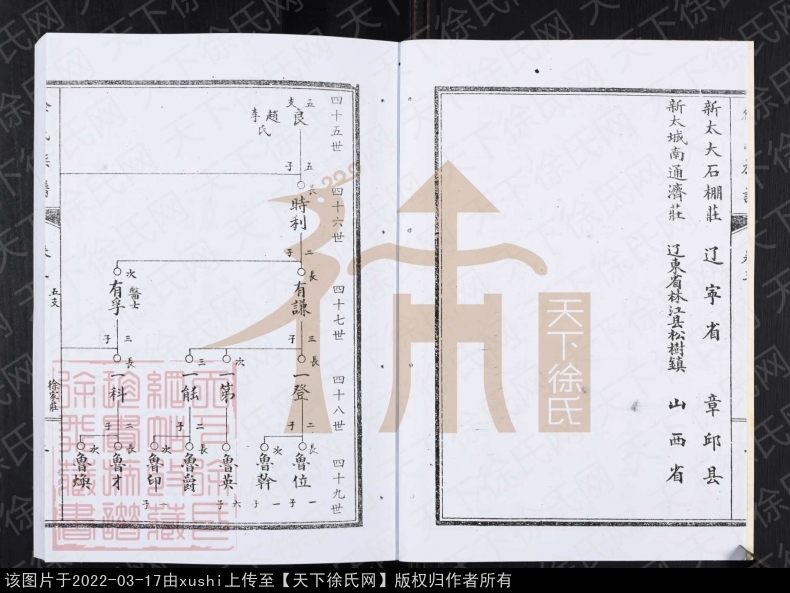 新太大石棚莊 辽寧省 章邱县
新太城南通濟莊 辽東省林江县松樹鎮 山西省
四十五世
五支
良
趙
李
氏
五子
四十六世
長
時利
二子
四十七世
長
有謙
次
有孚
醫士
三子
三子
四十八世
長
一登
次
一第
三
一能
長
一科
二子
子
二子
二子
四十九世
長
魯位
次
魯幹
魯英
長
魯爵
次
魯印
長
魯才
次
魯煥
一子
一子
六子
一子
五支
徐家莊
天下徐氏
天下徐氏网
该图片于2022-03-17由xushi上传至【天下徐氏网】版权归作者所有